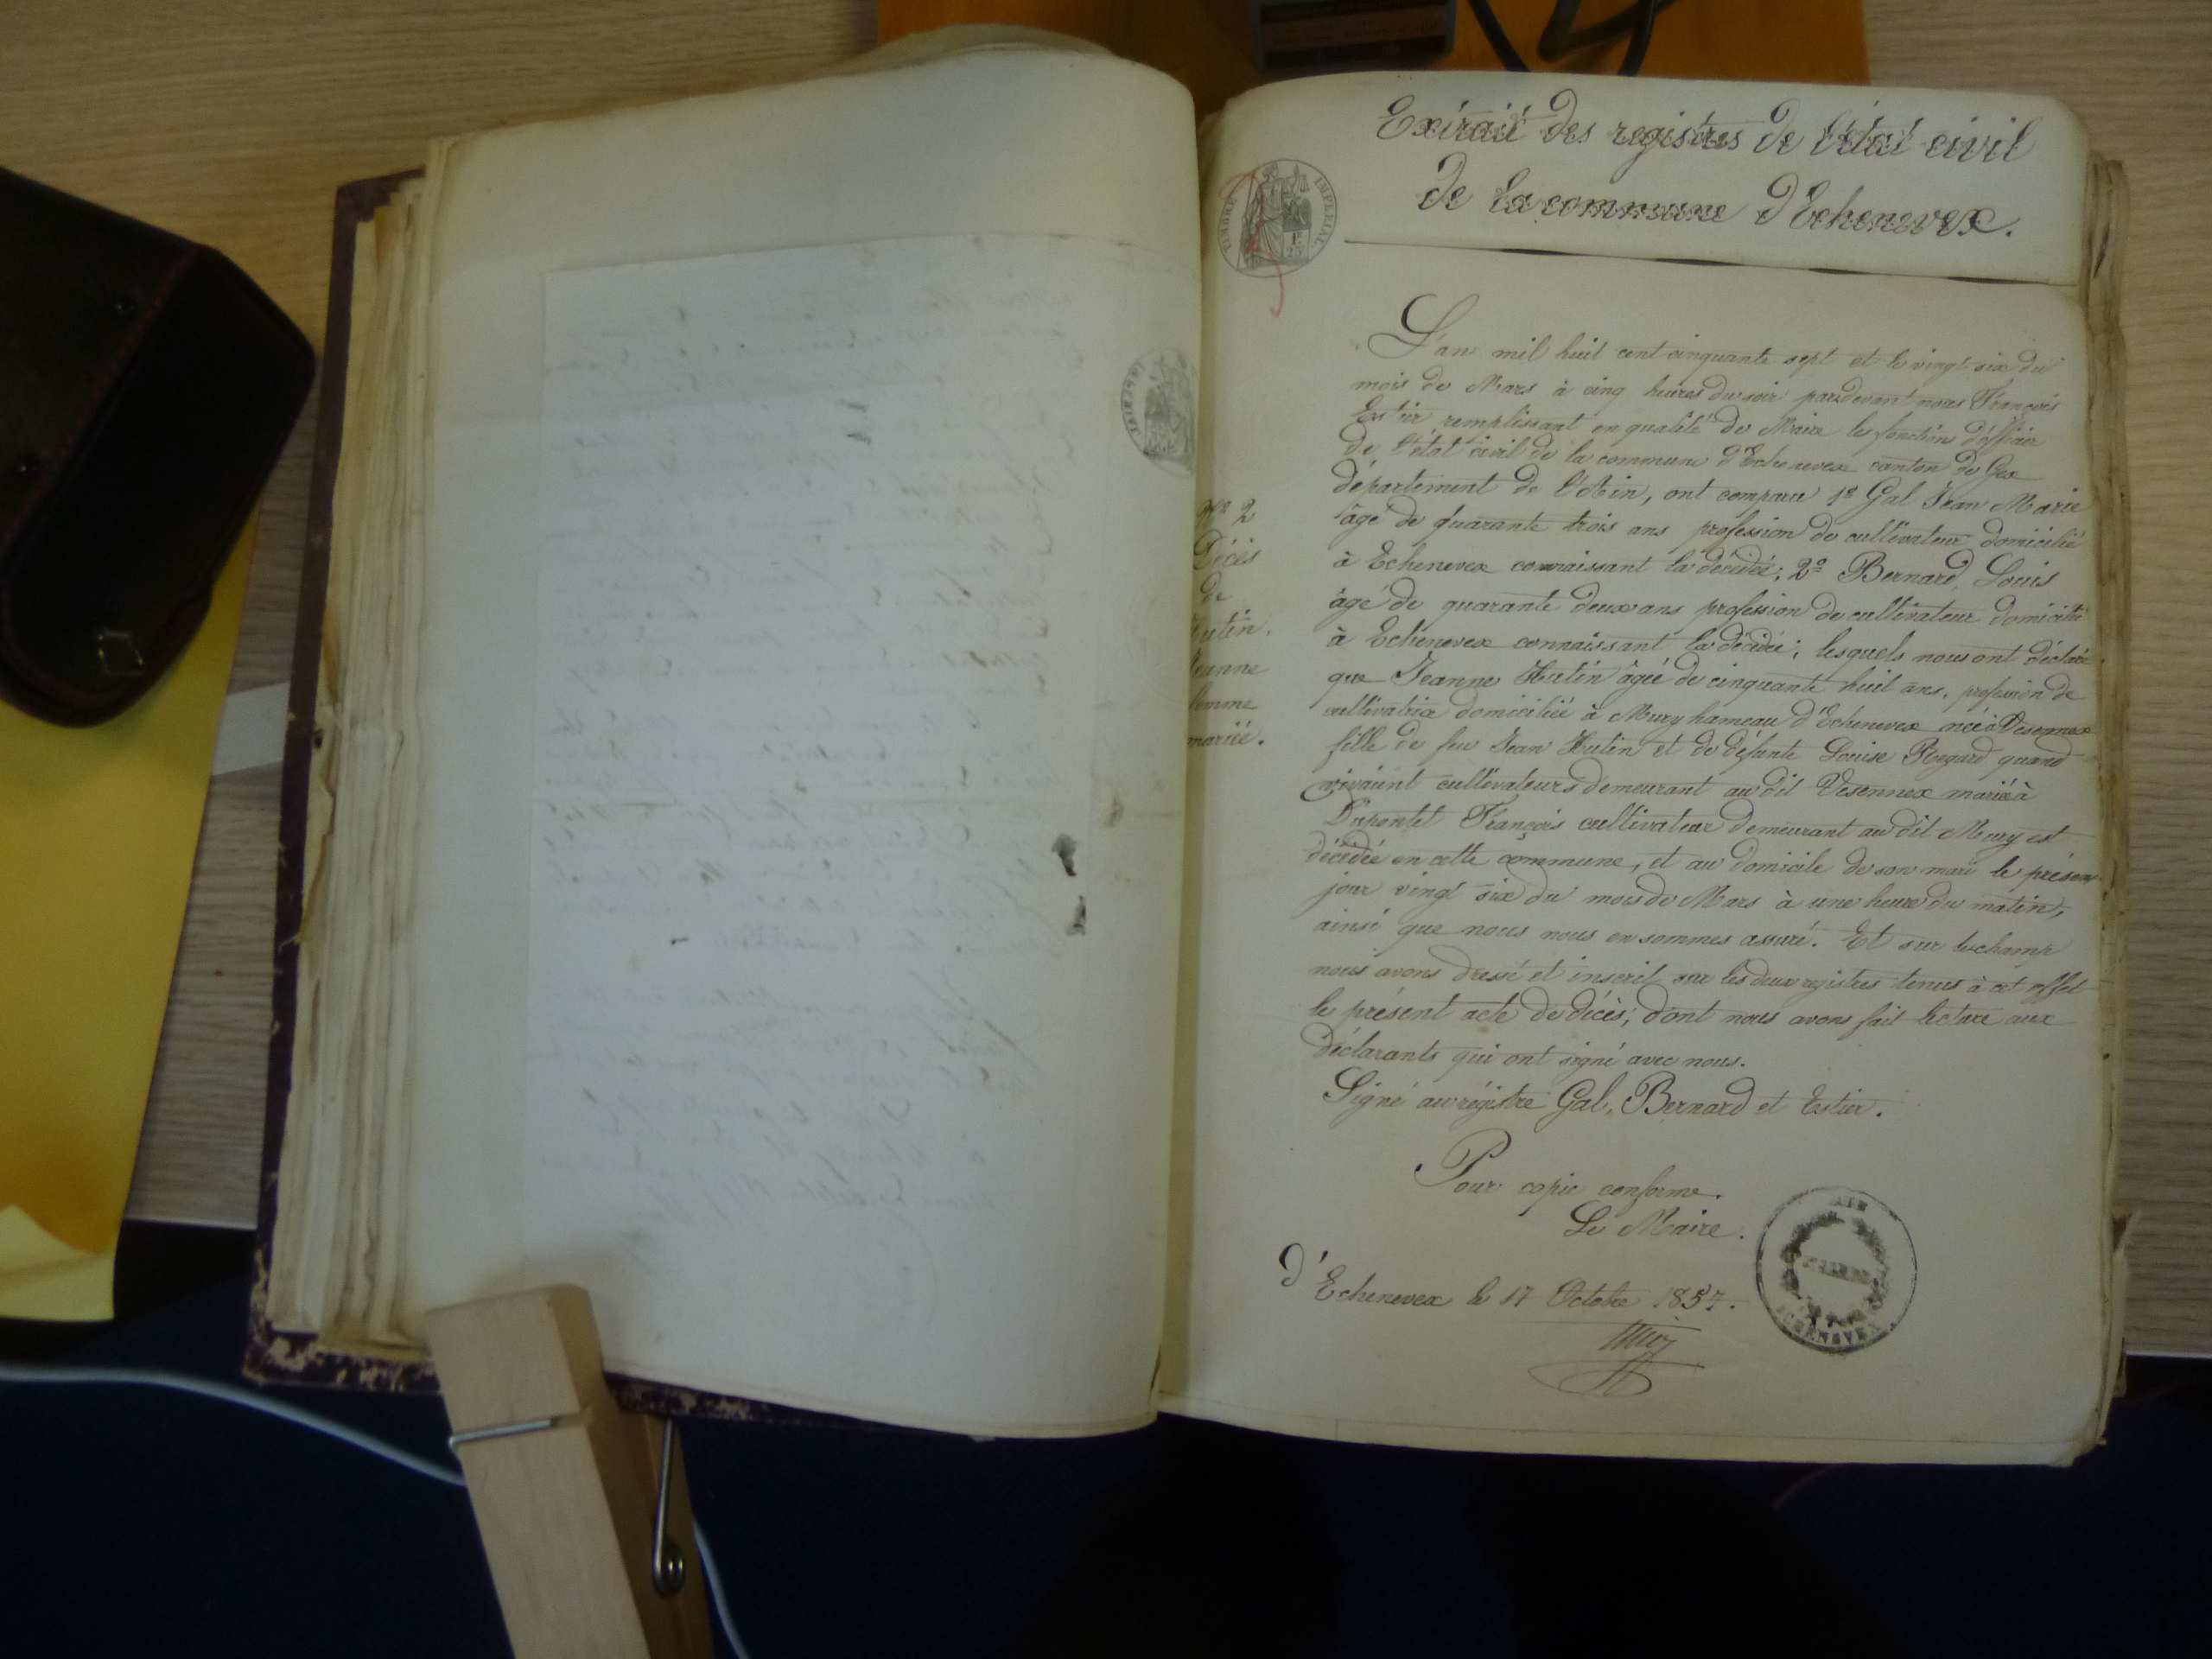 Extrait des registres de l'état civil
de la commune d'Echenevex.
TIMBRE IMPERIAL
N° 2
Décès
de
Hutin
Jeanne
femme
mariée.
L'an mil huit cent cinquante sept et le vingt six du
mois de Mars à cinq heures du soir pardevant nous François
Estier remplissant en qualité de Maire les fonctions d'officier
de l'état civil de la commune d'Echenevex canton de Gex
département de l'Ain, ont comparu 1° Gal Jean Marie
âgé de quarante trois ans profession de cultivateur domicilié
à Echenevex connaissant la décédée; 2° Bernard Louis
âgé de quarante deux ans profession de cultivateur domicilié
à Echenevex connaissant la décédée; lesquels nous ont déclaré
que Jeanne Hutin âgée de cinquante huit ans, profession de
cultivatrice domiciliée à Mury hameau d'Echenevex née à Vesennex
fille de feu Jean Hutin et de défunte Louise Regard quand
vivaient cultivateurs demeurant au dit Vesennex mariée à
Dupontet François cultivateur demeurant au dit Mury est
décédée en cette commune, et au domicile de son mari le présent
jour vingt six du mois de Mars à une heure du matin,
ainsi que nous nous en sommes assuré. Et sur le champ
nous avons dressé et inscrit sur les deux registres tenus à cet effet
le présent acte de décès, dont nous avons fait lecture aux
déclarants qui ont signé avec nous.
Signé au régistre Gal, Bernard et Estier.
Pour copie conforme.
Le Maire.
d'Echenevex le 17 Octobre 1857.
ECHENEVEX